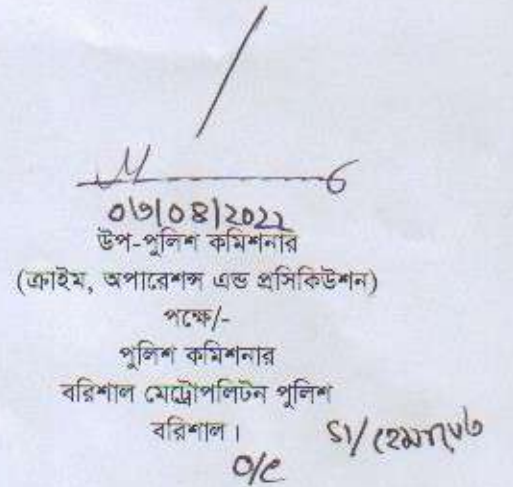 ০৬/০৪/২০২২
উপ-পুলিশ কমিশনার
(ক্রাইম, অপারেশন্স এন্ড প্রসিকিউশন)
পক্ষে/-
পুলিশ কমিশনার
বরিশাল মেট্রোপলিটন পুলিশ
বরিশাল।
O/C